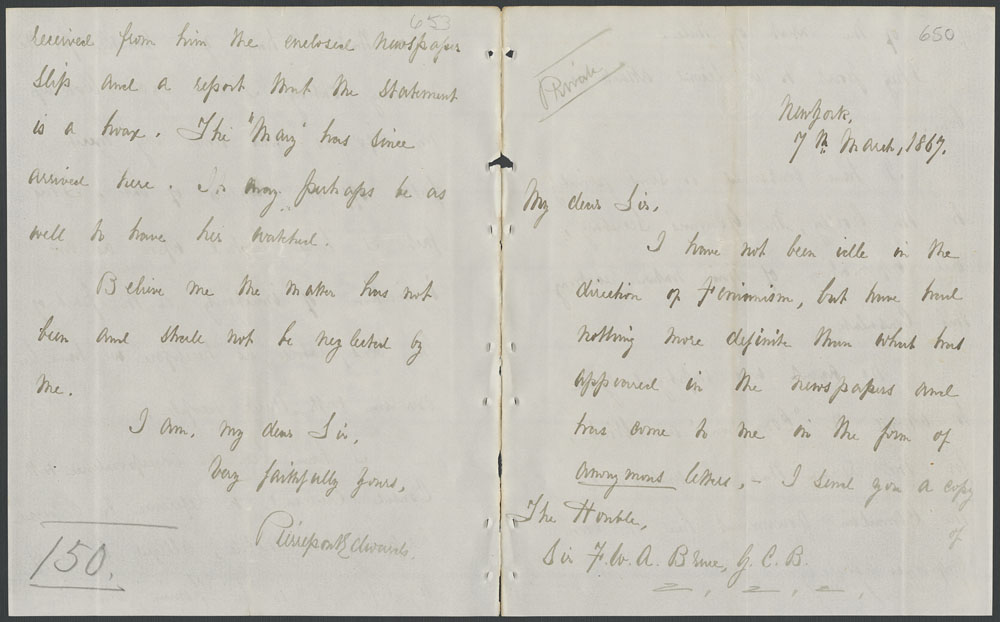 653
received from him the enclosed newspaper
slip and a report that the statement
is a hoax. The "Mary" has since
arrived here. It may perhaps be as
well to have her watched.
Believe me the matter has not
been and shall not be neglected by
me.
I am, my dear Sir,
Very faithfully yours,
Pierrepont Edwards
150.
650
Private
New York,
7th March, 1867.
My dear Sir,
I have not been idle in the
direction of Fenianism, but have had
nothing more definite than what has
appeared in the newspapers and
has come to me in the form of
anonymous letters. - I send you a copy
of
The Honble,
Sir F. W. A. Bruce, G. C. B.